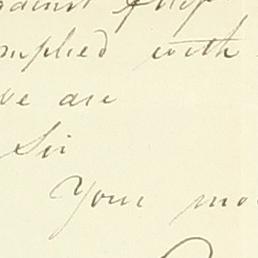 against
omplied with
we are
Sir
Your mo